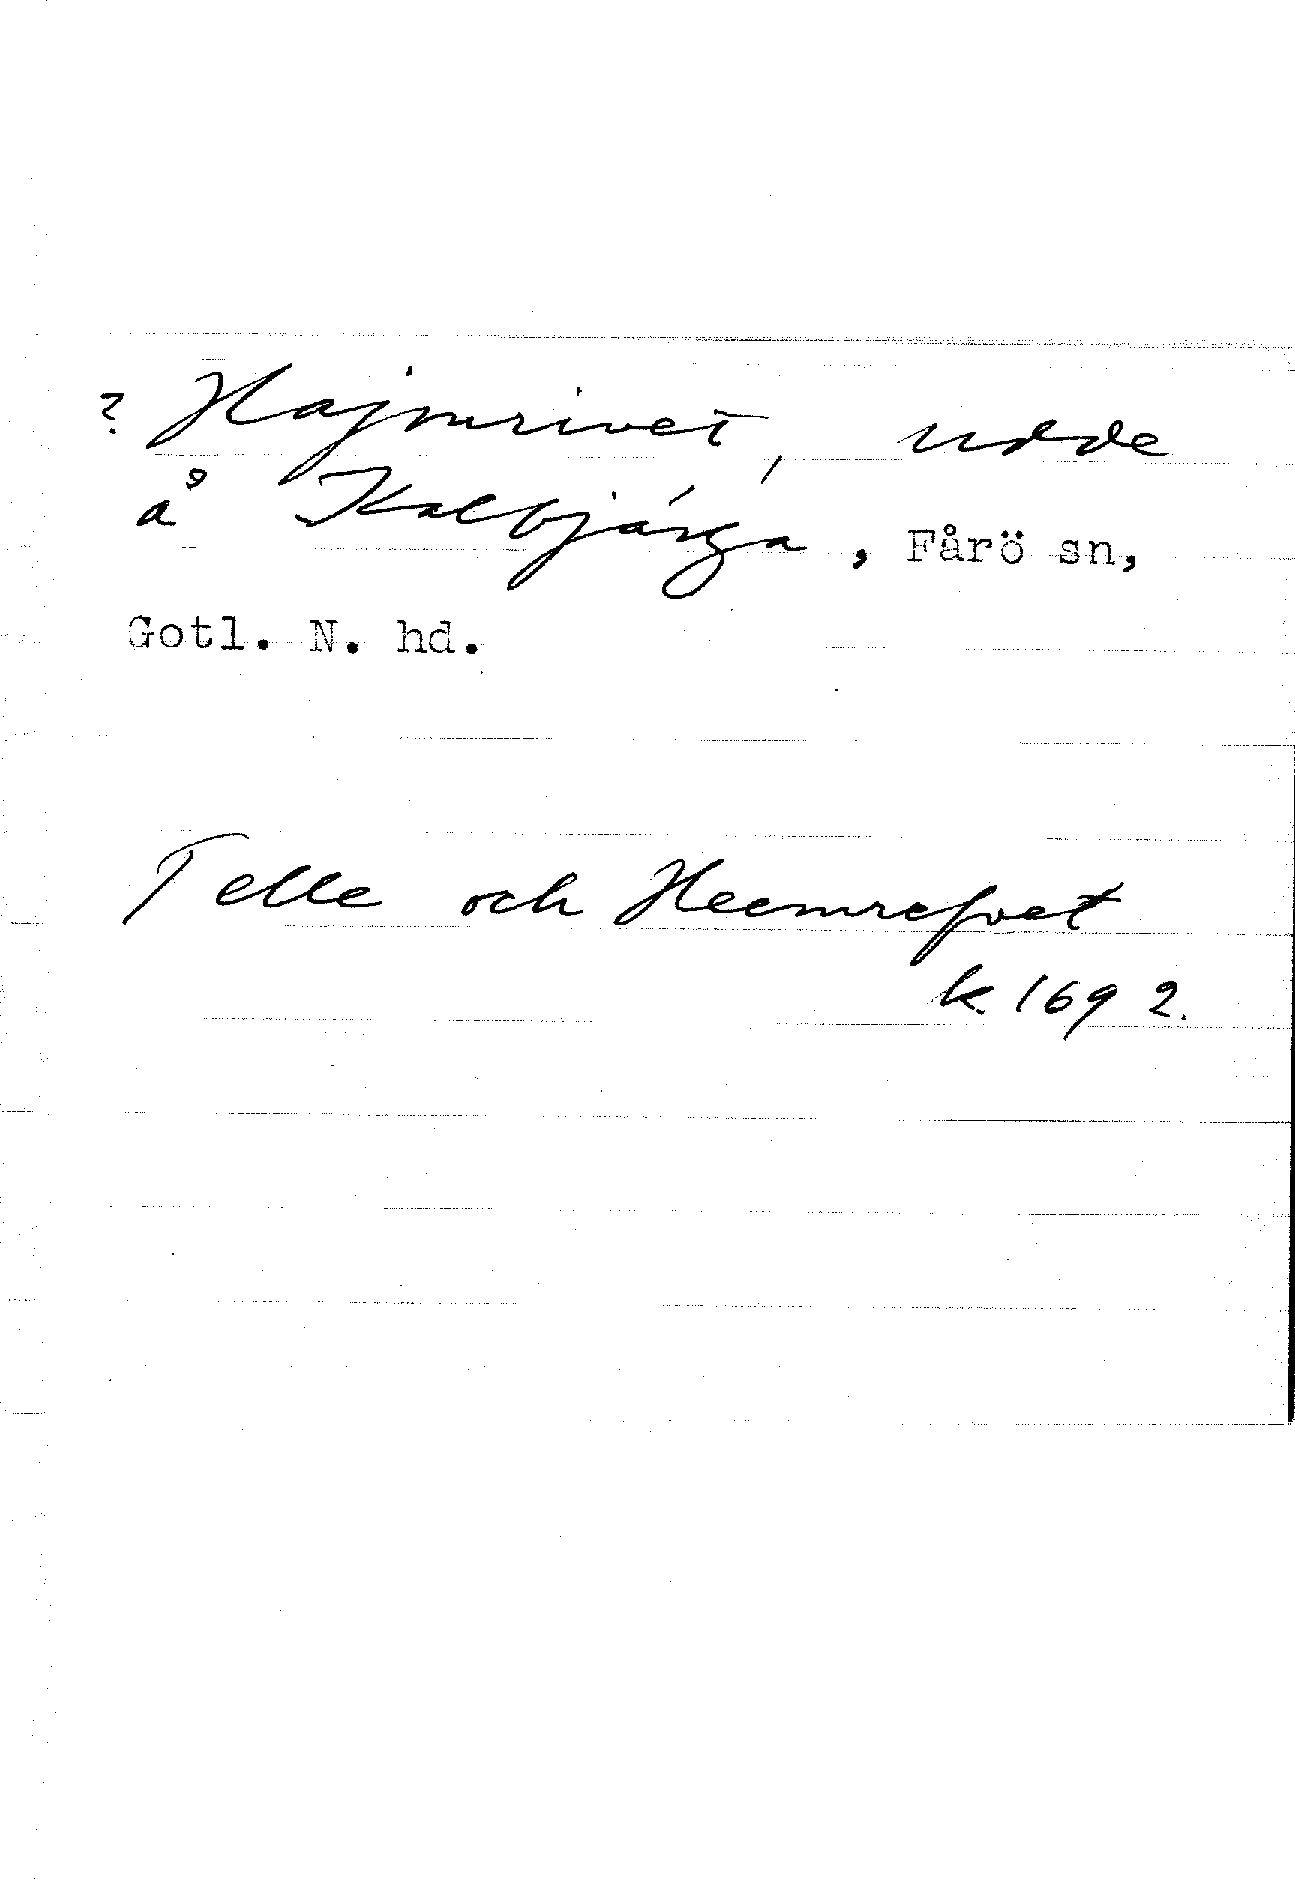 ? Hajmrivet, udde
å Kalbjärga, Fårö sn,
Gotl. N. hd.
Telle och Heemrefvet
k. 1692.